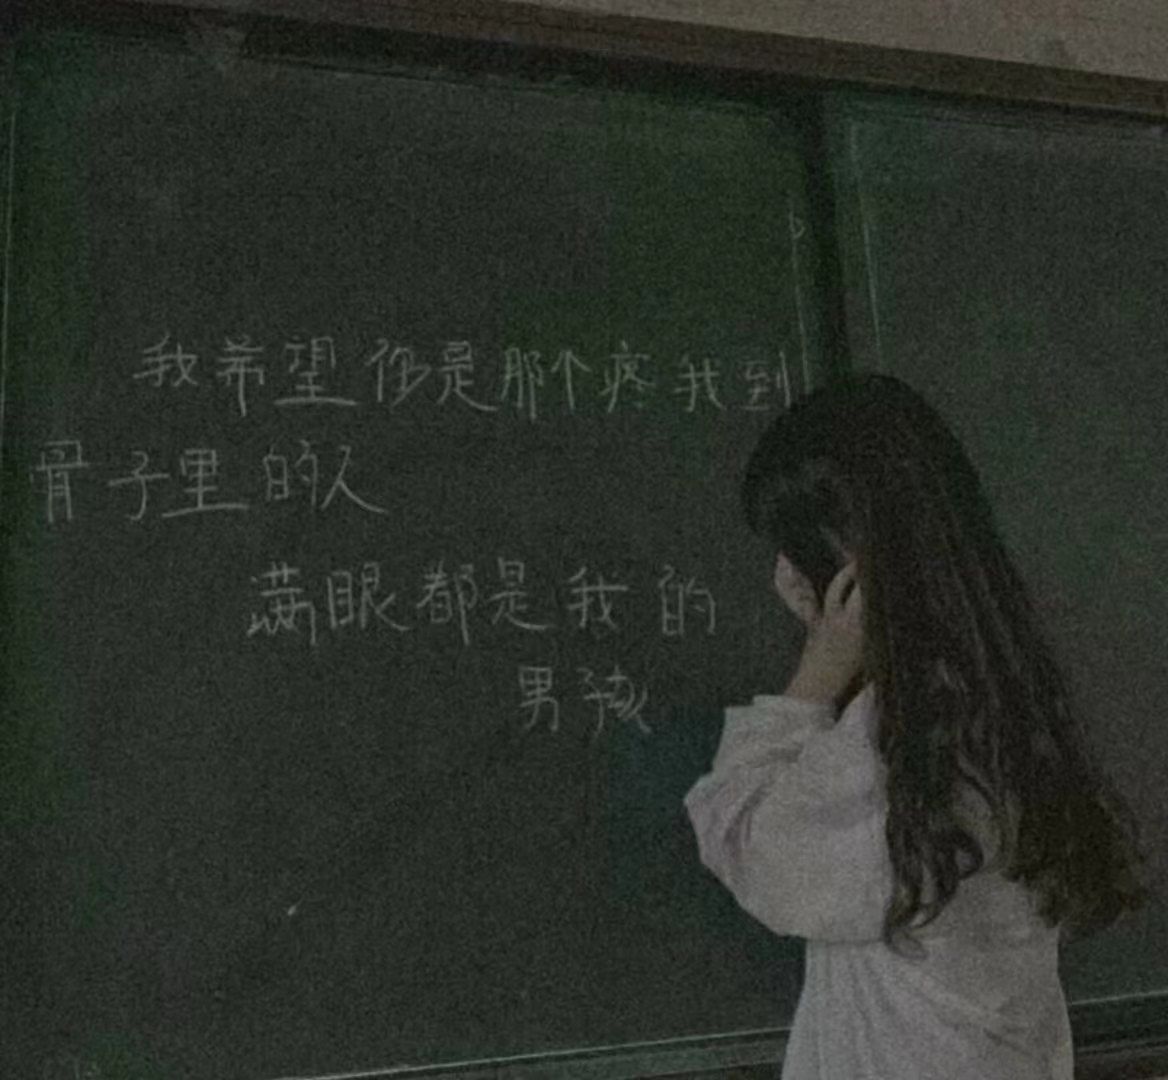 我希望你是那个疼我到
骨子里的人
满眼都是我的
男孩